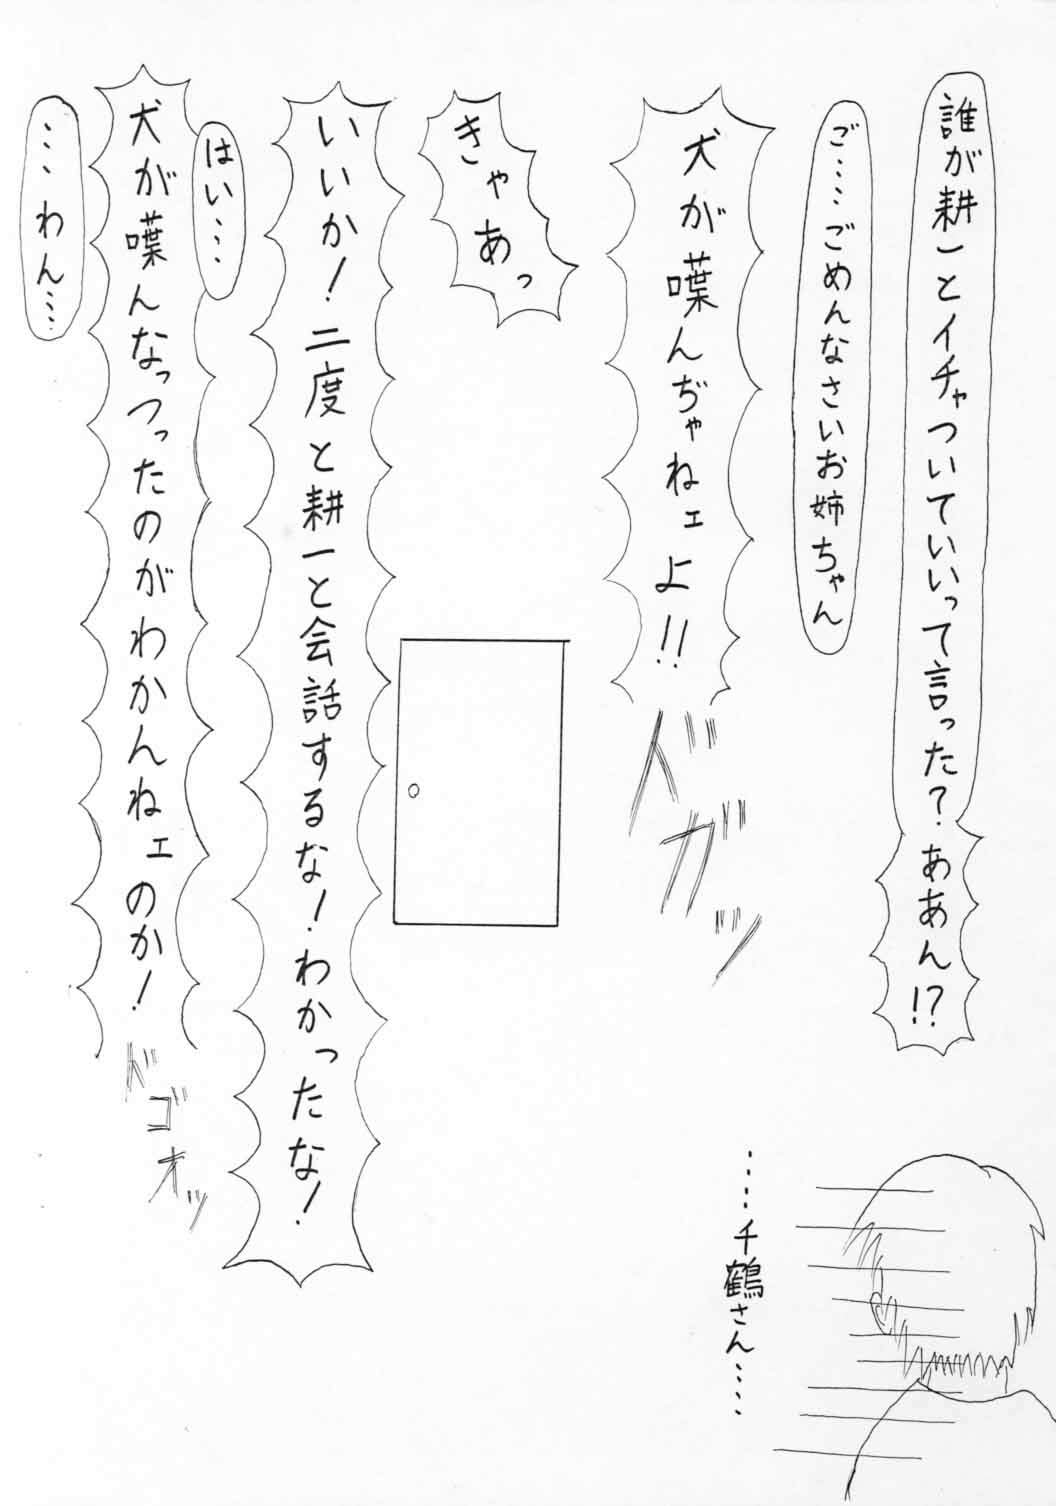 誰が耕一とイチャついていいって言った？ああん!?
ご‥‥ごめんなさいお姉ちゃん
犬が喋んぢゃねェよ!!
バガッ
きゃあっ
いいか！二度と耕一と会話するな！わかったな！
はい‥‥
犬が喋んなっつったのがわかんねェのか！
ドゴオッ
‥‥わん‥‥
‥‥‥千鶴さん‥‥‥